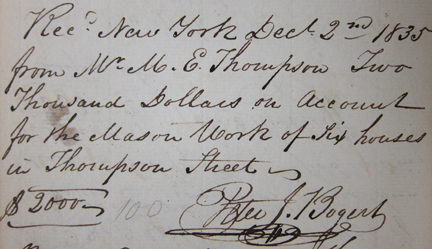 Recd. New York Decr. 2nd 1835
from Mr. M. E. Thompson Two
Thousand Dollars on Account
for the Mason Work of Six houses
in Thompson Street
$2000 100
Peter J. Bogert